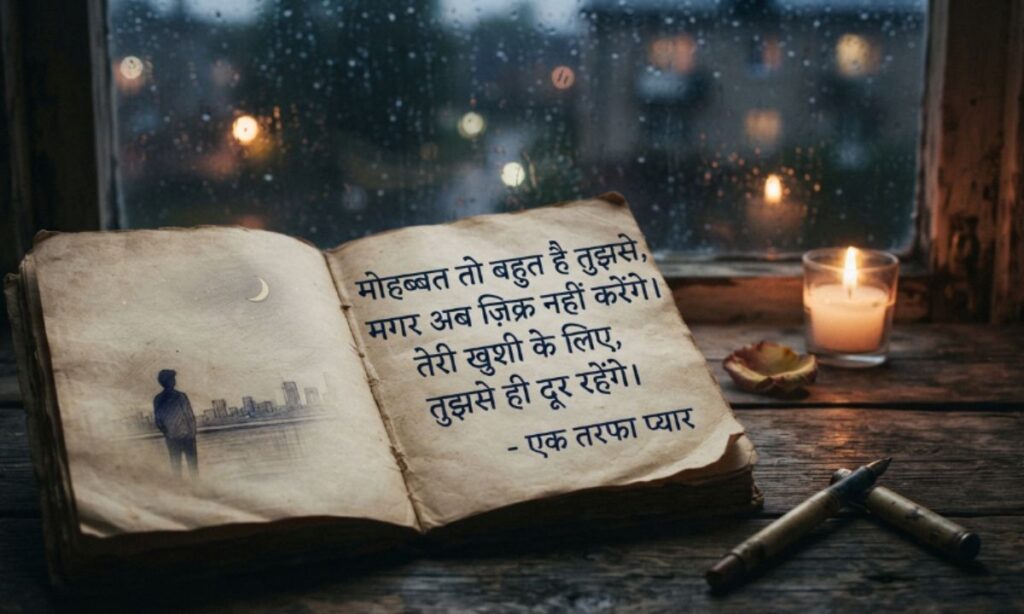 मोहब्बत तो बहुत है तुझसे,
मगर अब ज़िक्र नहीं करेंगे।
तेरी खुशी के लिए,
तुझसे ही दूर रहेंगे।
- एक तरफा प्यार